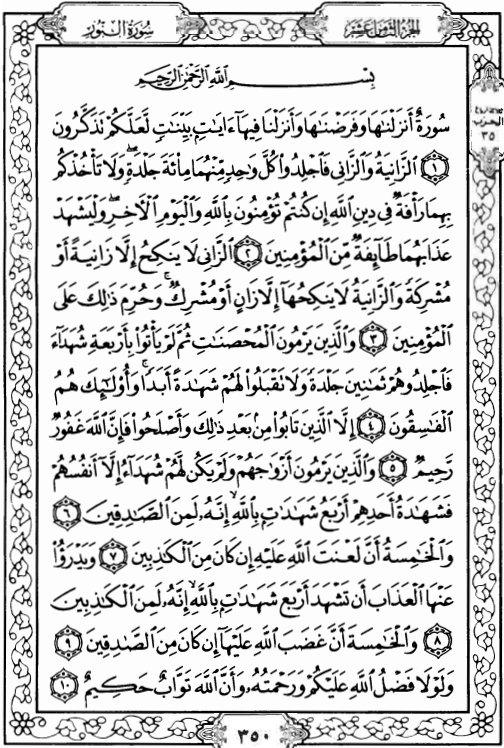 سُورَةُ النُّورِ
الجُزْءُ الثَّامِنَ عَشَرَ
الحزب
٣٥
بِسْمِ اللَّهِ الرَّحْمَٰنِ الرَّحِيمِ
سُورَةٌ أَنزَلْنَٰهَا وَفَرَضْنَٰهَا وَأَنزَلْنَا فِيهَآ ءَايَٰتٍۭ بَيِّنَٰتٍ لَّعَلَّكُمْ تَذَكَّرُونَ
١ ٱلزَّانِيَةُ وَٱلزَّانِى فَٱجْلِدُوا۟ كُلَّ وَٰحِدٍ مِّنْهُمَا مِا۟ئَةَ جَلْدَةٍ ۖ وَلَا تَأْخُذْكُم
بِهِمَا رَأْفَةٌ فِى دِينِ ٱللَّهِ إِن كُنتُمْ تُؤْمِنُونَ بِٱللَّهِ وَٱلْيَوْمِ ٱلْـَٔاخِرِ ۖ وَلْيَشْهَدْ
عَذَابَهُمَا طَآئِفَةٌ مِّنَ ٱلْمُؤْمِنِينَ ٢ ٱلزَّانِى لَا يَنكِحُ إِلَّا زَانِيَةً أَوْ
مُشْرِكَةً وَٱلزَّانِيَةُ لَا يَنكِحُهَآ إِلَّا زَانٍ أَوْ مُشْرِكٌ ۚ وَحُرِّمَ ذَٰلِكَ عَلَى
ٱلْمُؤْمِنِينَ ٣ وَٱلَّذِينَ يَرْمُونَ ٱلْمُحْصَنَٰتِ ثُمَّ لَمْ يَأْتُوا۟ بِأَرْبَعَةِ شُهَدَآءَ
فَٱجْلِدُوهُمْ ثَمَٰنِينَ جَلْدَةً وَلَا تَقْبَلُوا۟ لَهُمْ شَهَٰدَةً أَبَدًا ۚ وَأُو۟لَٰٓئِكَ هُمُ
ٱلْفَٰسِقُونَ ٤ إِلَّا ٱلَّذِينَ تَابُوا۟ مِنۢ بَعْدِ ذَٰلِكَ وَأَصْلَحُوا۟ فَإِنَّ ٱللَّهَ غَفُورٌ
رَّحِيمٌ ٥ وَٱلَّذِينَ يَرْمُونَ أَزْوَٰجَهُمْ وَلَمْ يَكُن لَّهُمْ شُهَدَآءُ إِلَّآ أَنفُسُهُمْ
فَشَهَٰدَةُ أَحَدِهِمْ أَرْبَعُ شَهَٰدَٰتٍۭ بِٱللَّهِ ۙ إِنَّهُۥ لَمِنَ ٱلصَّٰدِقِينَ ٦
وَٱلْخَٰمِسَةُ أَنَّ لَعْنَتَ ٱللَّهِ عَلَيْهِ إِن كَانَ مِنَ ٱلْكَٰذِبِينَ ٧ وَيَدْرَؤُا۟
عَنْهَا ٱلْعَذَابَ أَن تَشْهَدَ أَرْبَعَ شَهَٰدَٰتٍۭ بِٱللَّهِ ۙ إِنَّهُۥ لَمِنَ ٱلْكَٰذِبِينَ
٨ وَٱلْخَٰمِسَةَ أَنَّ غَضَبَ ٱللَّهِ عَلَيْهَآ إِن كَانَ مِنَ ٱلصَّٰدِقِينَ ٩
وَلَوْلَا فَضْلُ ٱللَّهِ عَلَيْكُمْ وَرَحْمَتُهُۥ وَأَنَّ ٱللَّهَ تَوَّابٌ حَكِيمٌ ١٠
٣٥٠